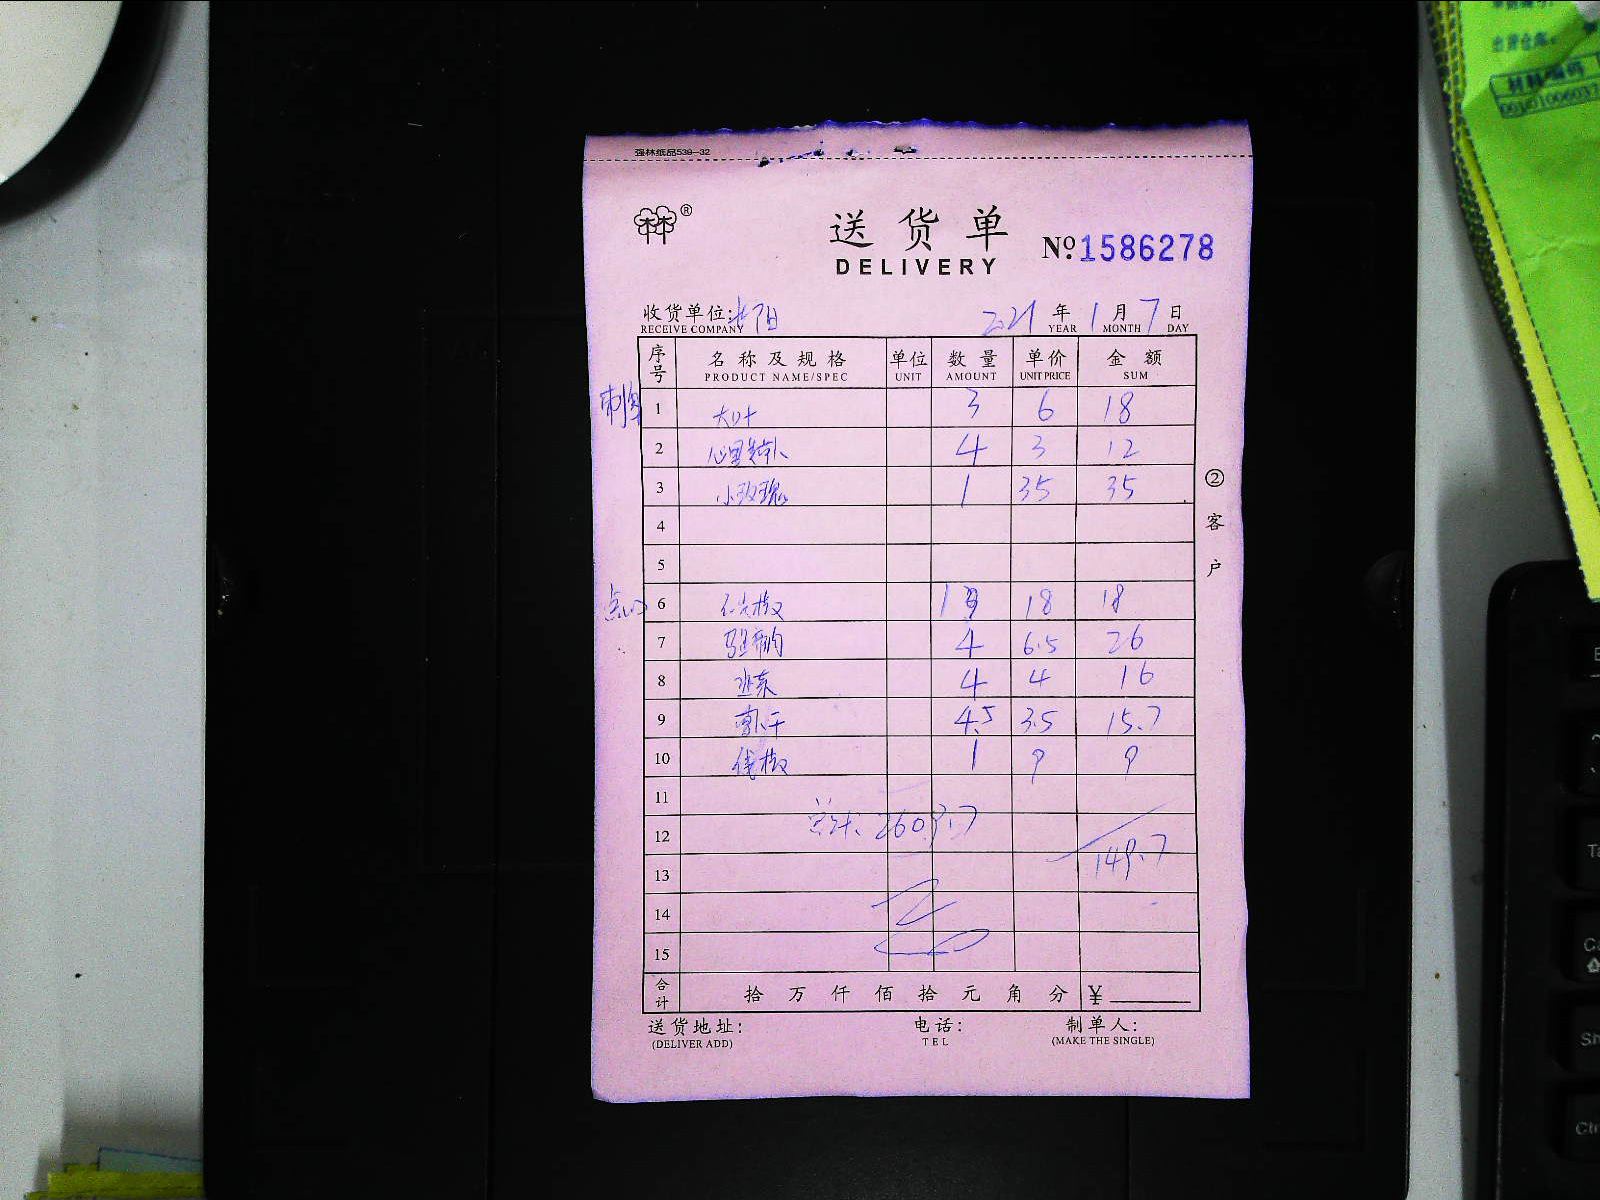 强林纸品539-32
®
送货单
DELIVERY
№ 1586278
收货单位:沈阳
2021年1月7日
RECEIVE COMPANY YEAR MONTH DAY
序号 名称及规格 单位 数量 单价 金额
PRODUCT NAME/SPEC UNIT AMOUNT UNIT PRICE SUM
刺身 1 大叶 3 6 18
2 心里美萝卜 4 3 12
3 小玫瑰 1 35 35
4
5
点心 6 18 18
7 4 6.5 26
8 4 4 16
9 4.5 3.5 15.7
10 线椒 1 9 9
11
12 总计: 2609.7
149.7
13
14
15
合计 拾万仟佰拾元角分 ¥
送货地址: 电话: 制单人:
(DELIVER ADD) TEL (MAKE THE SINGLE)
②客户